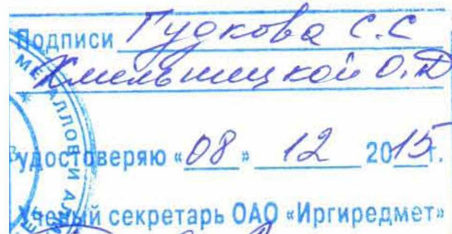 Подписи Гудкова С.С
Хмельницкой О.Д
удостоверяю «08» 12 2015г.
Ученый секретарь ОАО «Иргиредмет»